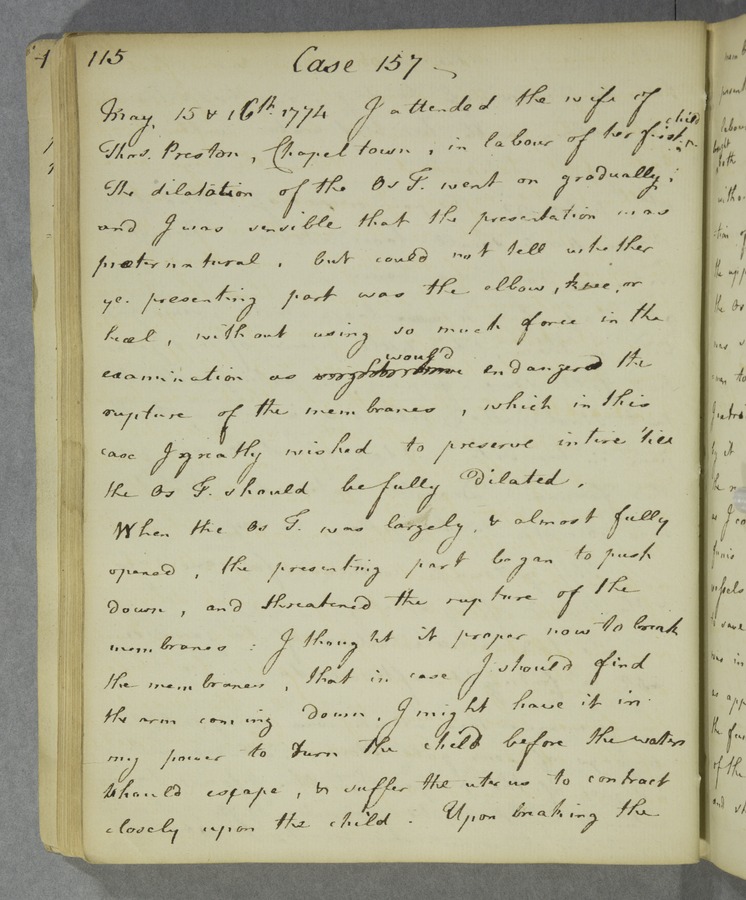 115
Case 157
May 15 & 16th. 1774 I attended the wife of
Thos. Preston, Chapeltown, in labour of her first child.
The dilatation of the Os T. went on gradually;
and I was sensible that the presentation was
præternatural, but could not tell whether
ye. presenting part was the elbow, knee, or
heel, without using so much force in the
examination as would endanger the
rupture of the membranes, which in this
case I greatly wished to preserve intire 'till
the Os T. should be fully dilated.
When the Os T. was largely, & almost fully
opened, the presenting part began to push
down, and threatened the rupture of the
membranes: I thought it proper now to break
the membranes, that in case I should find
the arm coming down, I might have it in
my power to turn the child before the waters
should escape, & suffer the uterus to contract
closely upon the child. Upon breaking the